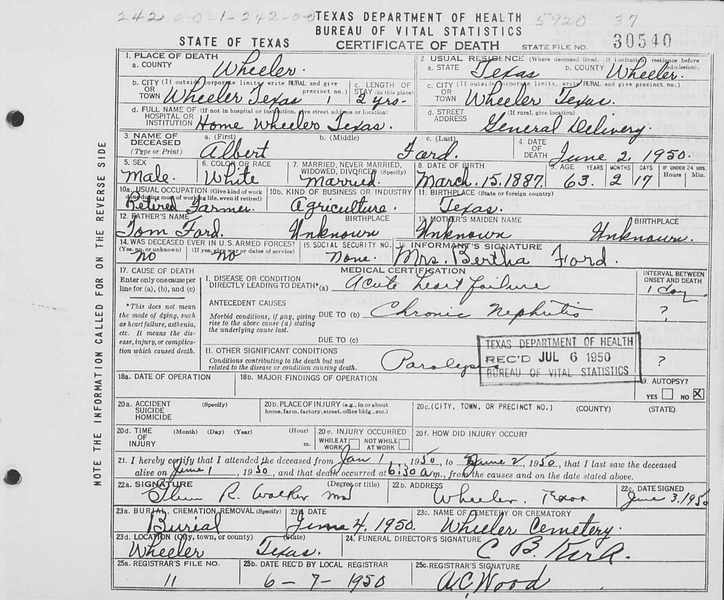 TEXAS DEPARTMENT OF HEALTH
BUREAU OF VITAL STATISTICS
STATE OF TEXAS CERTIFICATE OF DEATH STATE FILE NO. 30540
1. PLACE OF DEATH
a. COUNTY Wheeler.
2. USUAL RESIDENCE (Where deceased lived. If institution: residence before admission).
a. STATE Texas b. COUNTY Wheeler.
b. CITY (If outside corporate limits write RURAL and give precinct no.) OR TOWN Wheeler Texas 1
c. LENGTH OF STAY (in this place) 2 yrs.
c. CITY (If outside corporate limits, write RURAL and give precinct no.) OR TOWN Wheeler Texas.
d. FULL NAME OF (If not in hospital or institution, give street address or location) HOSPITAL OR INSTITUTION Home Wheeler Texas.
d. STREET ADDRESS (If rural, give location) General Delivery.
3. NAME OF DECEASED (Type or Print) a. (First) Albert b. (Middle) c. (Last) Ford.
4. DATE OF DEATH June 2, 1950.
5. SEX Male.
6. COLOR OR RACE White
7. MARRIED, NEVER MARRIED, WIDOWED, DIVORCED (Specify) Married.
8. DATE OF BIRTH March. 15. 1887.
9. AGE YEARS 63. MONTHS 2 DAYS 17 IF UNDER 24 HRS. Hours Min.
10a. USUAL OCCUPATION (Give kind of work done during most of working life, even if retired) Retired Farmer.
10b. KIND OF BUSINESS OR INDUSTRY Agriculture.
11. BIRTHPLACE (State or foreign country) Texas.
12. FATHER'S NAME Tom Ford. BIRTHPLACE Unknown
13. MOTHER'S MAIDEN NAME Unknown BIRTHPLACE Unknown.
14. WAS DECEASED EVER IN U.S. ARMED FORCES? (Yes, no, or unknown) no (If yes, give war or dates of service) no
15. SOCIAL SECURITY NO. None.
16. INFORMANT'S SIGNATURE Mrs. Bertha Ford.
17. CAUSE OF DEATH
Enter only one cause per line for (a), (b), and (c)
* This does not mean the mode of dying, such as heart failure, asthenia, etc. It means the disease, injury, or complication which caused death.
MEDICAL CERTIFICATION
INTERVAL BETWEEN ONSET AND DEATH
I. DISEASE OR CONDITION DIRECTLY LEADING TO DEATH* (a) Acute heart failure 1 day
ANTECEDENT CAUSES
Morbid conditions, if any, giving rise to the above cause (a) stating the underlying cause last.
DUE TO (b) Chronic Nephritis ?
DUE TO (c)
II. OTHER SIGNIFICANT CONDITIONS
Conditions contributing to the death but not related to the disease or condition causing death. ?
TEXAS DEPARTMENT OF HEALTH
REC'D JUL 6 1950
BUREAU OF VITAL STATISTICS
18a. DATE OF OPERATION
18b. MAJOR FINDINGS OF OPERATION
19. AUTOPSY? YES NO X
20a. ACCIDENT SUICIDE HOMICIDE (Specify)
20b. PLACE OF INJURY (e.g., in or about home, farm, factory, street, office bldg., etc.)
20c. (CITY, TOWN, OR PRECINCT NO.) (COUNTY) (STATE)
20d. TIME OF INJURY (Month) (Day) (Year) (Hour) m.
20e. INJURY OCCURRED WHILE AT WORK NOT WHILE AT WORK
20f. HOW DID INJURY OCCUR?
21. I hereby certify that I attended the deceased from Jan 1, 1950, to June 2, 1950, that I last saw the deceased
alive on June 1, 1950, and that death occurred at 6:30 a m., from the causes and on the date stated above.
22a. SIGNATURE (Degree or title) R. Walker MD
22b. ADDRESS Wheeler, Texas
22c. DATE SIGNED June 3, 1950
23a. BURIAL, CREMATION, REMOVAL (Specify) Burial
23b. DATE June 4, 1950.
23c. NAME OF CEMETERY OR CREMATORY Wheeler Cemetery.
23d. LOCATION (City, town, or county) (State) Wheeler Texas.
24. FUNERAL DIRECTOR'S SIGNATURE C. B. Kirk
25a. REGISTRAR'S FILE NO. 11
25b. DATE REC'D BY LOCAL REGISTRAR 6-7-1950
25c. REGISTRAR'S SIGNATURE A.C. Wood
NOTE THE INFORMATION CALLED FOR ON THE REVERSE SIDE